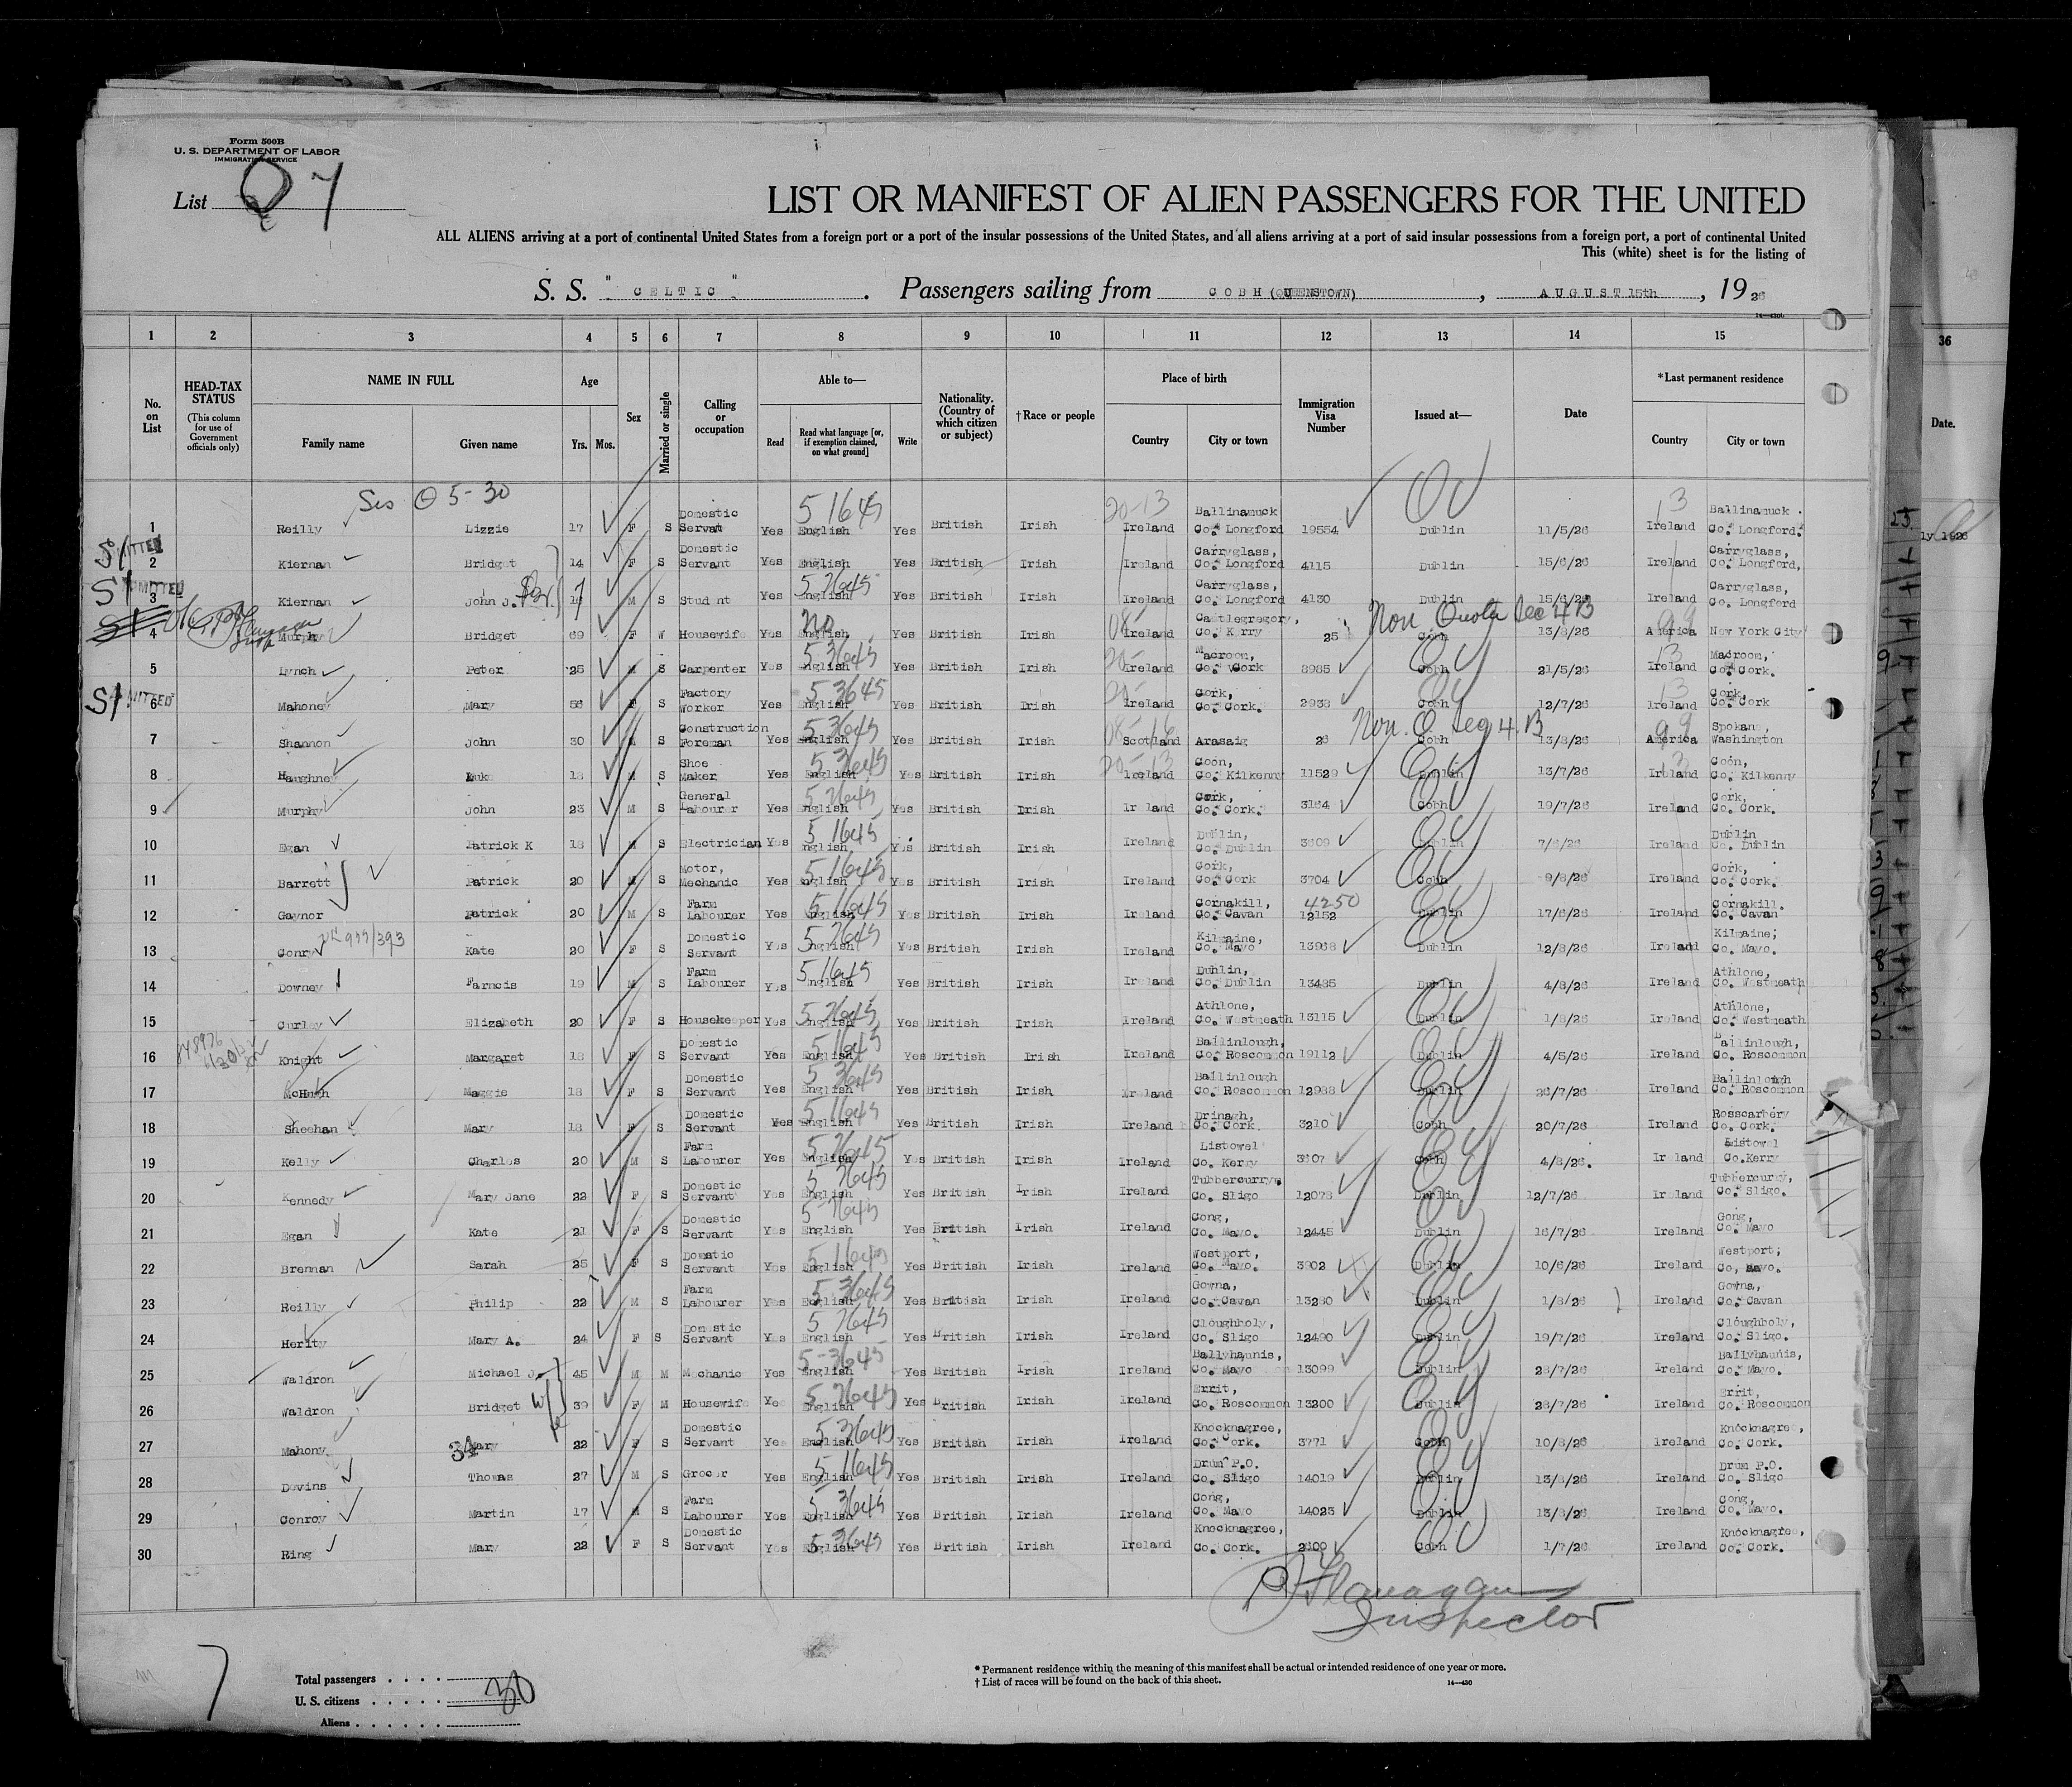 Form 500B
U. S. DEPARTMENT OF LABOR
IMMIGRATION SERVICE
List 27
LIST OR MANIFEST OF ALIEN PASSENGERS FOR THE UNITED
ALL ALIENS arriving at a port of continental United States from a foreign port or a port of the insular possessions of the United States, and all aliens arriving at a port of said insular possessions from a foreign port, a port of continental United
This (white) sheet is for the listing of
S. S. "CELTIC". Passengers sailing from COBH (QUEENSTOWN), AUGUST 15th, 1926
1 2 3 4 5 6 7 8 9 10 11 12 13 14 15 36
No. on List
HEAD-TAX STATUS (This column for use of Government officials only)
NAME IN FULL Family name Given name
Age Yrs. Mos.
Sex
Married or single
Calling or occupation
Able to— Read Read what language [or, if exemption claimed, on what ground] Write
Nationality. (Country of which citizen or subject)
†Race or people
Place of birth Country City or town
Immigration Visa Number
Issued at—
Date
*Last permanent residence Country City or town
Date.
Sis 5-30
1 Reilly Lizzie 17 F S Domestic Servant Yes English Yes British Irish Ireland Ballinamuck Co. Longford 19554 Dublin 11/5/26 Ireland Ballinamuck Co. Longford.
2 Kiernan Bridget 14 F S Domestic Servant Yes English Yes British Irish Ireland Carryglass, Co. Longford 4115 Dublin 15/6/26 Ireland Carryglass, Co. Longford,
3 Kiernan John J. M S Stud nt Yes English Yes British Irish Ireland Carryglass, Co. Longford 4130 Dublin 15/6/26 Ireland Carryglass, Co. Longford
4 Murphy Bridget 69 F W Housewife Yes English No Yes British Irish Ireland Castlegregory, Co. Kerry 25 Cobh Non Quota Sec 4 B 13/8/26 America New York City
5 Lynch Peter 25 M S Carpenter Yes English Yes British Irish Ireland Macroom, Co. Cork 3985 Cobh 21/5/26 Ireland Macroom, Co. Cork.
6 Mahoney Mary 56 F S Factory Worker Yes English Yes British Irish Ireland Cork, Co. Cork. 2938 Cobh 12/7/26 Ireland Cork, Co. Cork
7 Shannon John 30 M S Construction Foreman Yes English Yes British Irish Scotland Arasaig 26 Cobh 13/8/26 America Spokan, Washington
8 Haughney Luke 18 M S Shoe Maker Yes English Yes British Irish Ireland Coon, Co. Kilkenny 11529 Dublin 13/7/26 Ireland Coon, Co. Kilkenny
9 Murphy John 23 M S General Labourer Yes English Yes British Irish Ir land Cork, Co. Cork. 3164 Cobh 19/7/26 Ireland Cork, Co. Cork.
10 Egan Patrick K 18 M S Electrician Yes English Yes British Irish Ireland Dublin, Co. Dublin 3609 Dublin 7/6/26 Ireland Dublin Co. Dublin
11 Barrett Patrick 20 M S Motor, Mechanic Yes English Yes British Irish Ireland Cork, Co. Cork 3704 Cobh 9/8/26 Ireland Cork, Co. Cork.
12 Gaynor Patrick 20 M S Farm Labourer Yes English Yes British Irish Ireland Cornakill, Co. Cavan 4250 12152 Dublin 17/6/26 Ireland Cornakill. Co. Cavan
13 Conry Kate 20 F S Domestic Servant Yes English Yes British Irish Ireland Kilmaine, Co. Mayo 13968 Dublin 12/8/26 Ireland Kilmaine; Co. Mayo.
14 Downey Farncis 19 M S Farm Labourer Yes English Yes British Irish Ireland Dublin, Co. Dublin 13485 Dublin 4/8/26 Ireland Athlone, Co. Westmeath
15 Curley Elizabeth 20 F S Housekeeper Yes English Yes British Irish Ireland Athlone, Co. Westmeath 13115 Dublin 1/8/26 Ireland Athlone, Co. Westmeath
16 Knight Margaret 18 F S Domestic Servant Yes English Yes British Irish Ireland Ballinlough, Co. Roscommon 19112 Dublin 4/5/26 Ireland Ballinlough, Co. Roscommon
17 McHugh Maggie 18 F S Domestic Servant Yes English Yes British Irish Ireland Ballinlough Co. Roscommon 12988 Dublin 26/7/26 Ireland Ballinlough Co. Roscommon
18 Sheehan Mary 18 F S Domestic Servant Yes English Yes British Irish Ireland Drinagh, Co. Cork 3210 Cobh 20/7/26 Ireland Rosscarbery Co. Cork.
19 Kelly Charles 20 M S Farm Labourer Yes English Yes British Irish Ireland Listowel Co. Kerry 3607 Cobh 4/8/26. Ir land Listowel Co.Kerry
20 Kennedy Mary Jane 22 F S Domestic Servant Yes English Yes British Irish Ireland Tubbercurry, Co. Sligo 12078 Dublin 12/7/26 Ireland Tubbercurry, Co. Sligo.
21 Egan Kate 21 F S Domestic Servant Yes English Yes British Irish Ireland Cong, Co. Mayo. 12445 Dublin 16/7/26 Ireland Cong, Co. Mayo
22 Brennan Sarah 25 F S Domstic Servant Yes English Yes British Irish Ireland Westport, Co. Mayo. 3902 Dublin 10/6/26 Ireland Westport; Co, Mayo.
23 Reilly Philip 22 M S Farm Labourer Yes English Yes British Irish Ireland Gowna, Co. Cavan 13280 Dublin 1/8/26 Ireland Gowna, Co. Cavan
24 Herity Mary A. 24 F S Domestic Servant Yes English Yes British Irish Ireland Cloughholy, Co. Sligo 12490 Dublin 19/7/26 Ireland Cloughholy, Co. Sligo.
25 Waldron Michael J. 45 M M Mechanic Yes English Yes British Irish Ireland Ballyhaunis, Co. Mayo 13099 Dublin 28/7/26 Ireland Ballyhaunis, Co. Mayo.
26 Waldron Bridget wife 39 F M Housewife Yes English Yes British Irish Ireland Errit, Co. Roscommon 13200 Dublin 28/7/26 Ireland Errit, Co. Roscommon
27 Mahony Mary 22 F S Domestic Servant Yes English Yes British Irish Ireland Knocknagree, Co. Cork. 3771 Cobh 10/8/26 Ireland Knocknagree, Co. Cork.
28 Dovins Thomas 27 M S Grocer Yes English Yes British Irish Ireland Drum P.O. Co. Sligo 14019 Dublin 13/8/26 Ireland Drum P.O. Co. Sligo
29 Conroy Martin 17 M S Farm Labourer Yes English Yes British Irish Ireland Cong, Co. Mayo 14023 Dublin 13/8/26 Ireland Cong, Co. Mayo.
30 Ring Mary 22 F S Domestic Servant Yes English Yes British Irish Ireland Knocknagree, Co. Cork. 2600 Cobh 1/7/26 Ireland Knocknagree, Co. Cork.
Flanagan
Inspector
7
Total passengers . . . .
U. S. citizens . . . . . 30
Aliens . . . . . .
* Permanent residence within the meaning of this manifest shall be actual or intended residence of one year or more.
† List of races will be found on the back of this sheet.
14—430